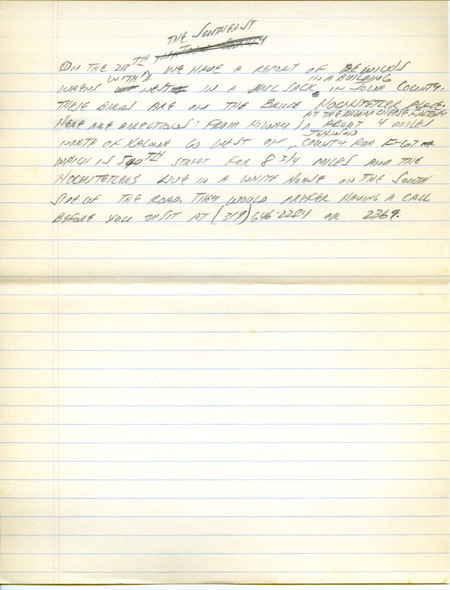 THE SOUTHEAST
ON THE 29TH WE HAVE A REPORT OF BEWICK'S
WITH A IN A BUILDING
WRENS NEST IN A SACK IN COUNTY.
THESE BIRDS ARE ON THE HOCHSTETLER PLACE.
AT THE
HERE ARE DIRECTIONS: FROM HIWAY 1 ABOUT 4 MILES
JOHNSON
NORTH OF KALONA GO WEST ON COUNTY ROAD F-67
WHICH IS 540TH STREET FOR 8 3/4 MILES AND THE
HOCHSTETLERS LIVE IN A WHITE HOUSE ON THE SOUTH
SIDE OF THE ROAD. THEY WOULD PREFER HAVING A CALL
BEFORE YOU VISIT AT (319) 646-2284 OR 2269.